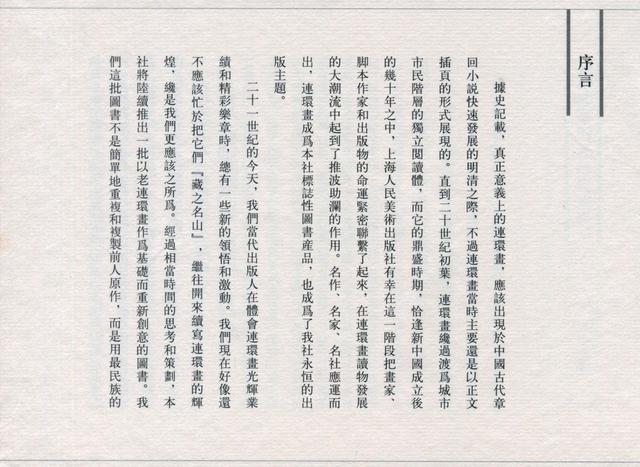 序言
據史記載，真正意義上的連環畫，應該出現於中國古代章
回小説快速發展的明清之際，不過連環畫當時主要還是以正文
插頁的形式展現的。直到二十世紀初葉，連環畫纔過渡爲城市
市民階層的獨立閲讀體，而它的鼎盛時期，恰逢新中國成立後
的幾十年之中，上海人民美術出版社有幸在這一階段把畫家、
脚本作家和出版物的命運緊密聯繫了起來，在連環畫讀物發展
的大潮流中起到了推波助瀾的作用。名作、名家、名社應運而
出，連環畫成爲本社標誌性圖書産品，也成爲了我社永恒的出
版主題。
二十一世紀的今天，我們當代出版人在體會連環畫光輝業
績和精彩樂章時，總有一些新的領悟和激動。我們現在好像還
不應該忙於把它們『藏之名山』，繼往開來續寫連環畫的輝
煌，纔是我們更應該之所爲。經過相當時間的思考和策劃，本
社將陸續推出一批以老連環畫作爲基礎而重新創意的圖書。我
們這批圖書不是簡單地重複和複製前人原作，而是用最民族的